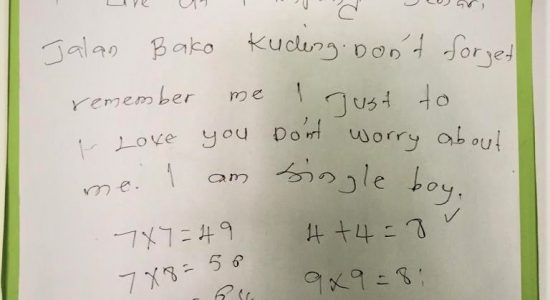 I Live at
Jalan Bako Kuding. Don't forget
remember me I Just to
I Love you Don't worry about
me. I am single boy.
7x7=49 4+4=8 ✓
7x8=56 9x9=81